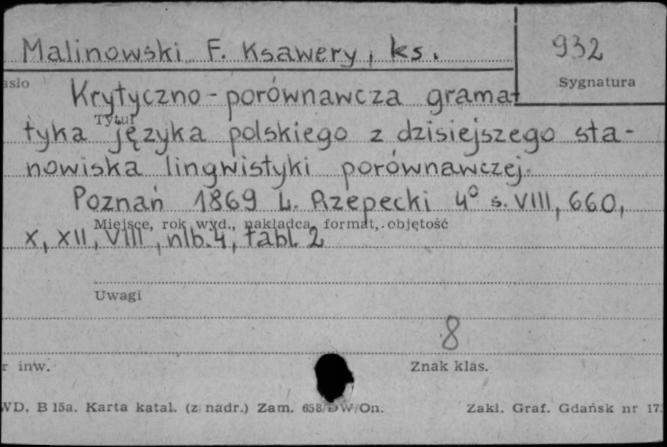 Malinowski F. Ksawery, ks.
932
asło
Sygnatura
Krytyczno-porównawcza grama-
Tytuł
tyka języka polskiego z dzisiejszego sta-
nowiska lingwistyki porównawczej.
Poznań 1869 L. Rzepecki 4° s. VIII, 660,
Miejsce, rok wyd., nakładca, format, objętość
X, XII, VIII, nlb. 4, tabl. 2
Uwagi
8
r inw.
Znak klas.
WD. B 15a. Karta katal. (z nadr.) Zam. 658/DW/On.
Zakł. Graf. Gdańsk nr 173